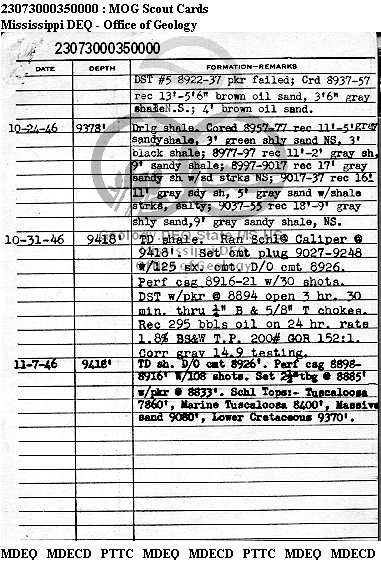 23073000350000 : MOG Scout Cards
Mississippi DEQ - Office of Geology
23073000350000
DATE DEPTH FORMATION—REMARKS
DST #5 8922-37 pkr failed; Crd 8937-57
rec 13'-5'6" brown oil sand, 3'6" gray
shale N.S.; 4' brown oil sand.
10-24-46 9378' Drlg shale. Cored 8957-77 rec 11'-5' gray
sandy shale, 3' green shly sand NS, 3'
black shale; 8977-97 rec 11'-2' gray sh,
9' sandy shale; 8997-9017 rec 17' gray
sandy sh w/sd strks NS; 9017-37 rec 16'
11' gray sdy sh, 5' gray sand w/shale
strks, salty; 9037-55 rec 18'-9' gray
shly sand, 9' gray sandy shale, NS.
10-31-46 9418' TD shale. Ran Schl @ Caliper @
9418'. Set cmt plug 9027-9248
w/125 sx. cmt. D/O cmt 8926.
Perf csg 8916-21 w/30 shots.
DST w/pkr @ 8894 open 3 hr. 30
min. thru ½" B & 5/8" T chokes.
Rec 295 bbls oil on 24 hr. rate
1.8% BS&W T.P. 200# GOR 152:1.
Corr grav 14.9 testing.
11-7-46 9418' TD sh. D/O cmt 8926'. Perf csg 8898-
8916' W/108 shots. Set 2½" tbg @ 8885'
w/pkr @ 8833'. Schl Tops:- Tuscaloosa
7860', Marine Tuscaloosa 8400', Massive
sand 9080', Lower Cretaceous 9370'.
MDEQ MDECD PTTC MDEQ MDECD PTTC MDEQ MDECD